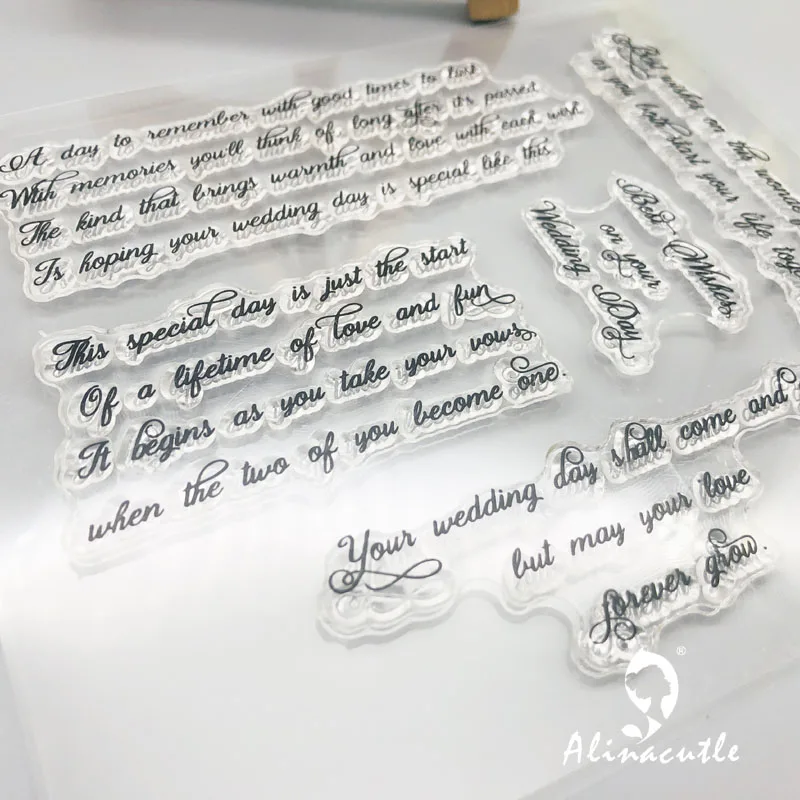 A day to remember with good times to last
With memories you'll think of, long after it's passed
The kind that brings warmth and love with each wish
Is hoping your wedding day is special like this
Best wishes on this
as you both start your life
Best Wishes
on your
Wedding Day
This special day is just the start
Of a lifetime of love and fun
It begins as you take your vows
when the two of you become one.
Your wedding day shall come and
but may your love
forever grow.
®
Alinacutle